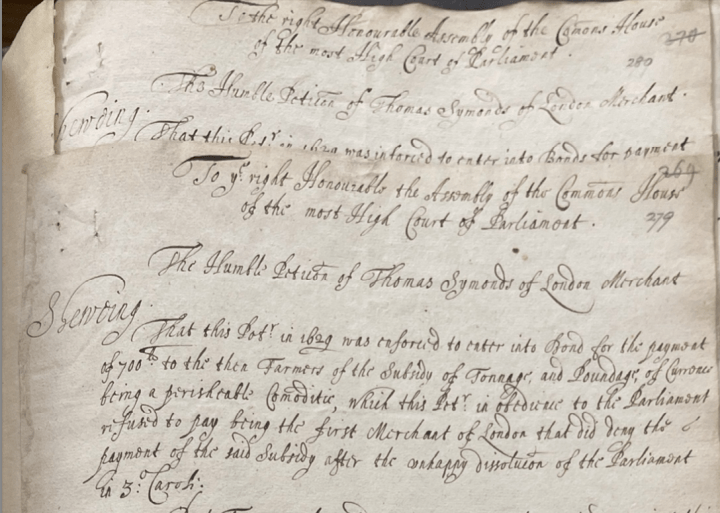 To the right Honourable Assembly of the Comons House
of the most High Court of Parliament.
270
280
The Humble Peticon of Thomas Symonds of London Merchant.
Shewding.
That this Petr. in 1629 was inforced to enter into Bonds for payment
To ye. right Honourable the Assembly of the Commons House
of the most High Court of Parliament.
269
279
The Humble Peticon of Thomas Symonds of London Merchant
Sheweing.
That this Petr. in 1629 was enforced to enter into Bond for the payment
of 700li to the then Farmers of the Subsidy of Tonnage, and Poundage, of Currence
being a perisheable Comoditie, which this Petr. in obedience to the Parliament
refused to pay being the first Merchant of London that did deny the
payment of the said Subsidy after the unhappy dissolucon of the Parliament
in 3: Caroli.